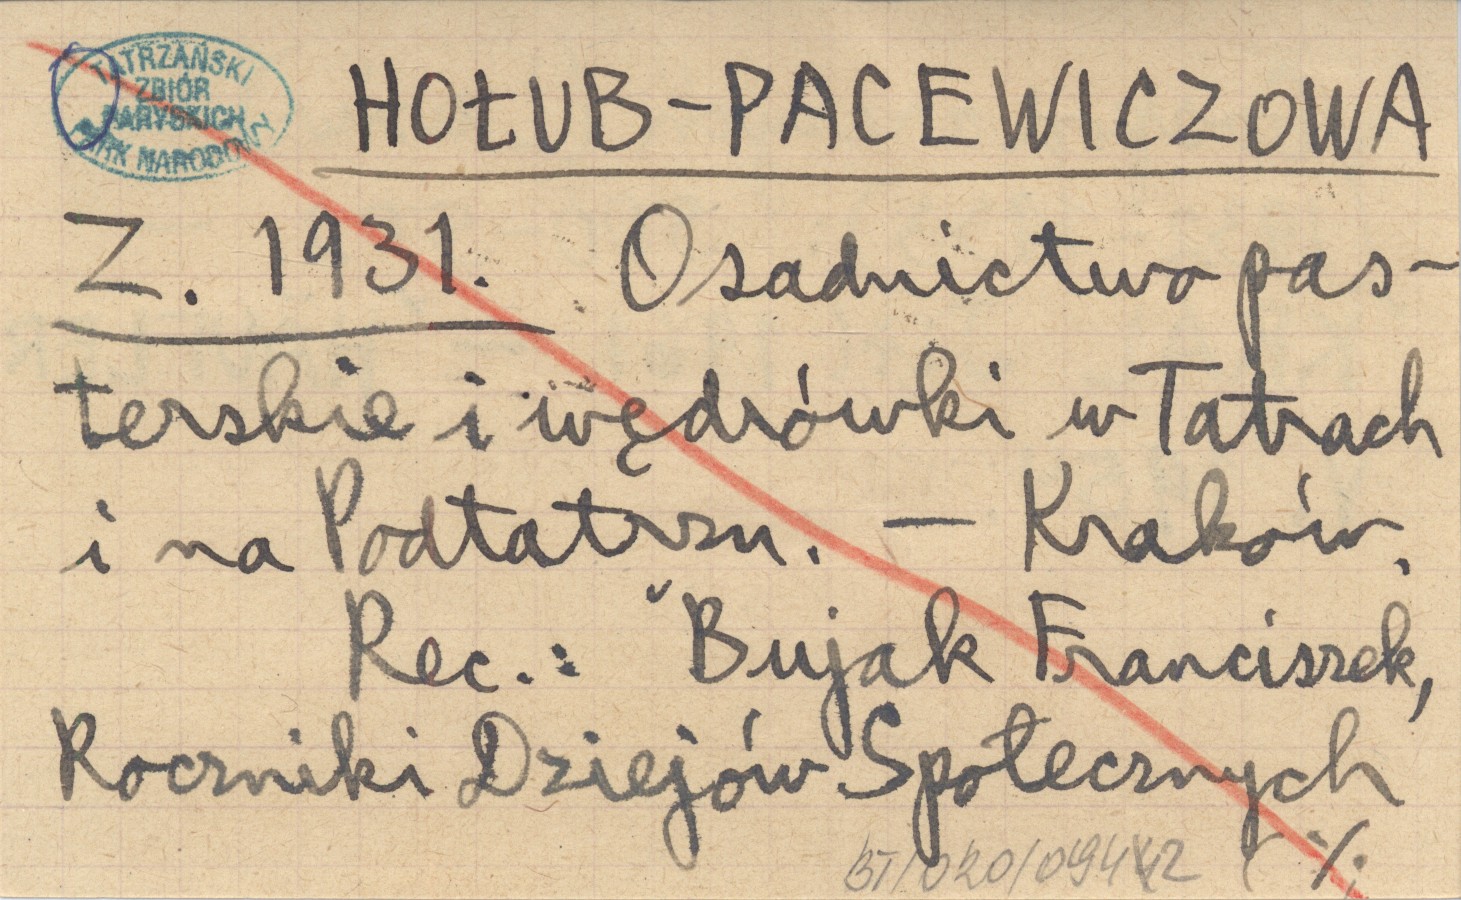 TATRZAŃSKI
ZBIÓR
PARYSKICH
PARK NARODOWY
HOŁUB-PACEWICZOWA
Z. 1931. Osadnictwo pas-
terskie i wędrówki w Tatrach
i na Podtatrzu. — Kraków.
Rec.: Bujak Franciszek,
Roczniki Dziejów Społecznych
BT/020/094